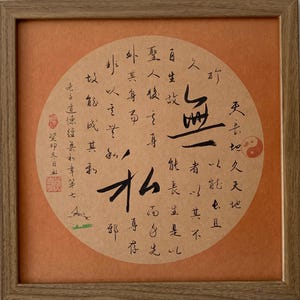 無私
天長地久天地
所以能長且
久者以其不
自生故能長生是以
聖人後其身而身先
外其身而身存
非以其無私邪
故能成其私
老子道德經第七
癸卯冬月